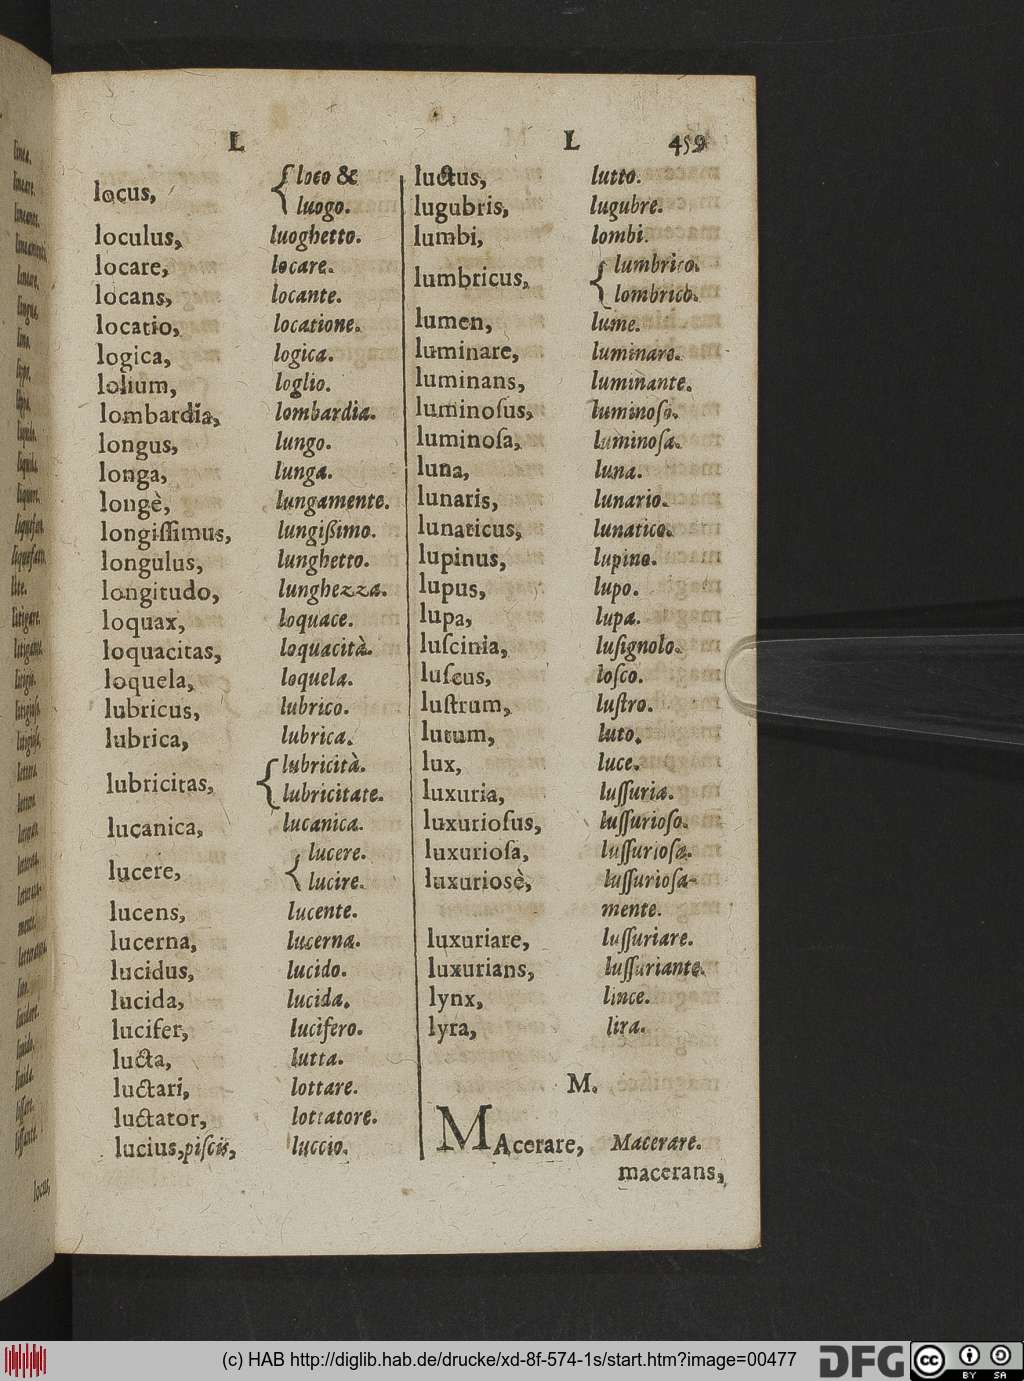 L L 459
locus, { loco &
luogo.
loculus, luoghetto.
locare, locare.
locans, locante.
locatio, locatione.
logica, logica.
lolium, loglio.
lombardia, lombardia.
longus, lungo.
longa, lunga.
longè, lungamente.
longiſſimus, lungißimo.
longulus, lunghetto.
longitudo, lunghezza.
loquax, loquace.
loquacitas, loquacità.
loquela, loquela.
lubricus, lubrico.
lubrica, lubrica.
lubricitas, { lubricità.
lubricitate.
lucanica, lucanica.
lucere, { lucere.
lucire.
lucens, lucente.
lucerna, lucerna.
lucidus, lucido.
lucida, lucida.
lucifer, lucifero.
lucta, lutta.
luctari, lottare.
luctator, lottatore.
lucius, piſcis, luccio.
luctus, lutto.
lugubris, lugubre.
lumbi, lombi.
lumbricus, { lumbrico.
lombrico.
lumen, lume.
luminare, luminare.
luminans, luminante.
luminoſus, luminoſo.
luminoſa, luminoſa.
luna, luna.
lunaris, lunario.
lunaticus, lunatico.
lupinus, lupino.
lupus, lupo.
lupa, lupa.
luſcinia, luſignolo.
luſcus, loſco.
luſtrum, luſtro.
lutum, luto.
lux, luce.
luxuria, luſſuria.
luxurioſus, luſſurioſo.
luxurioſa, luſſurioſa.
luxuriosè, luſſurioſa-
mente.
luxuriare, luſſuriare.
luxurians, luſſuriante.
lynx, lince.
lyra, lira.
M.
MAcerare, Macerare.
macerans,
(c) HAB http://diglib.hab.de/drucke/xd-8f-574-1s/start.htm?image=00477
DFG
cc BY SA